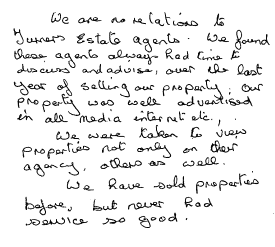 We are no relations to
Turners Estate agents. We found
these agents always had time to
discuss and advise, over the last
year of selling our property, our
property was well advertised
in all media internet etc.,
We were taken to view
properties not only on their
agency, others as well.
We have sold properties
before, but never had
service so good.